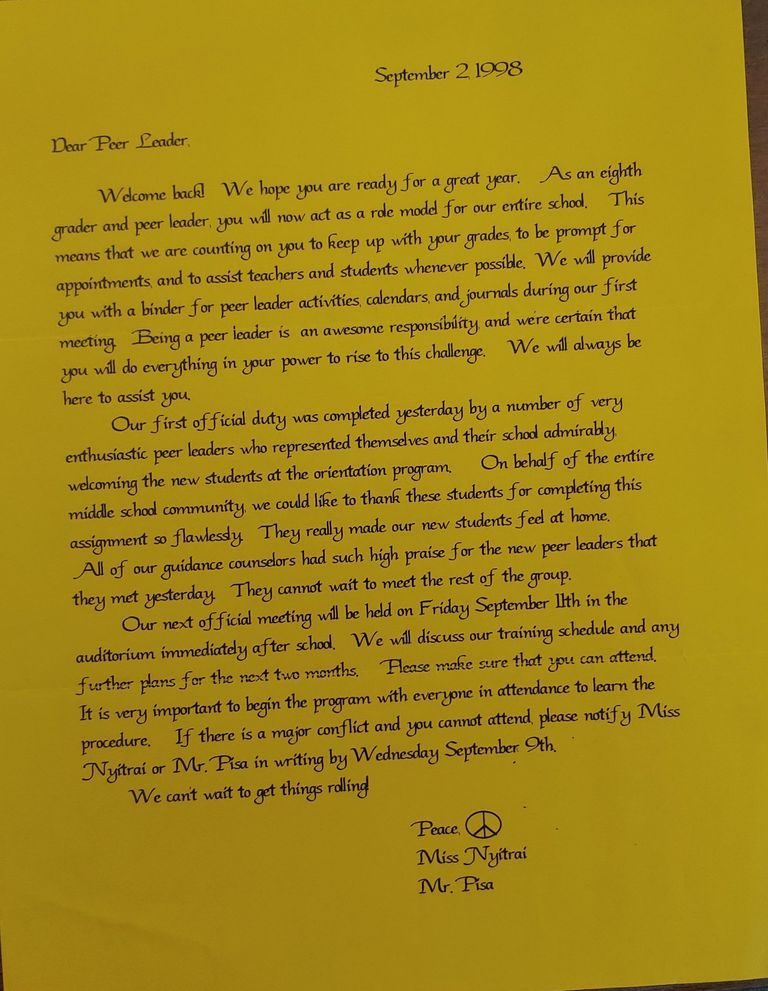 September 2, 1998
Dear Peer Leader,
Welcome back! We hope you are ready for a great year. As an eighth
grader and peer leader, you will now act as a role model for our entire school. This
means that we are counting on you to keep up with your grades, to be prompt for
appointments, and to assist teachers and students whenever possible. We will provide
you with a binder for peer leader activities, calendars, and journals during our first
meeting. Being a peer leader is an awesome responsibility, and we're certain that
you will do everything in your power to rise to this challenge. We will always be
here to assist you.
Our first official duty was completed yesterday by a number of very
enthusiastic peer leaders who represented themselves and their school admirably,
welcoming the new students at the orientation program. On behalf of the entire
middle school community, we could like to thank these students for completing this
assignment so flawlessly. They really made our new students feel at home.
All of our guidance counselors had such high praise for the new peer leaders that
they met yesterday. They cannot wait to meet the rest of the group.
Our next official meeting will be held on Friday September 11th in the
auditorium immediately after school. We will discuss our training schedule and any
further plans for the next two months. Please make sure that you can attend.
It is very important to begin the program with everyone in attendance to learn the
procedure. If there is a major conflict and you cannot attend, please notify Miss
Nyitrai or Mr. Pisa in writing by Wednesday September 9th.
We can't wait to get things rolling!
Peace,
Miss Nyitrai
Mr. Pisa